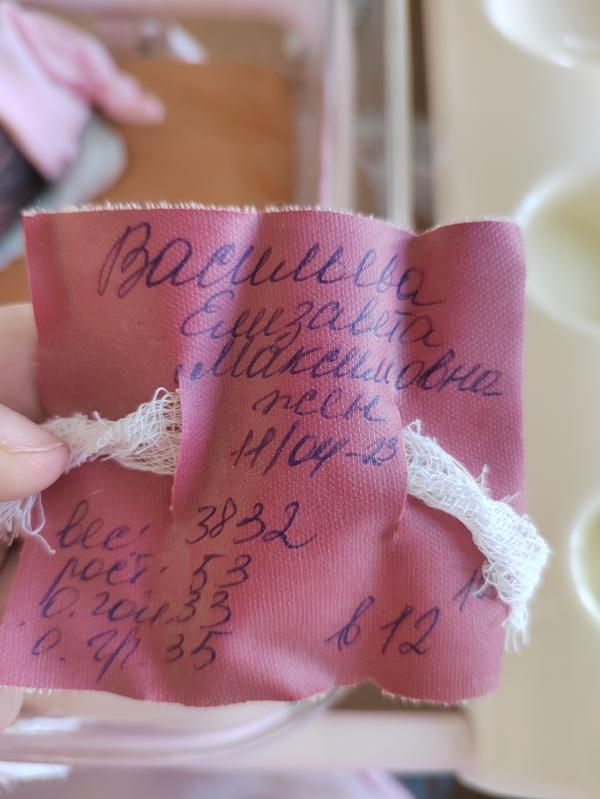 Васильева
Елизавета
Максимовна
жен
11/04-23
вес: 3832
рост: 53
о. гол. 33
о. гр. 35
в 12